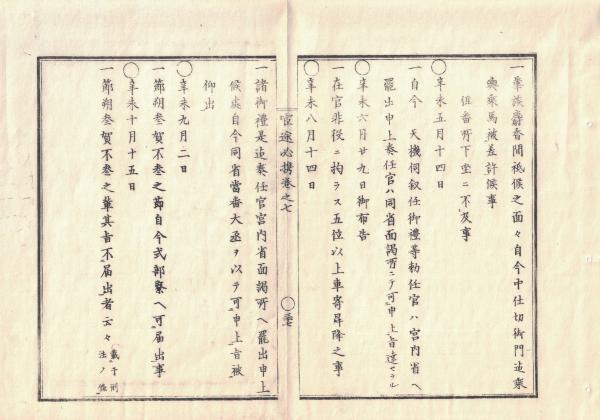 一華族麝香間祗候之面々自今中仕切御門迄乗
輿乘馬被差許候事
但番所下坐ニ不及事
◯辛未五月十四日
一自今　天機伺叙任御禮等勅任官ハ宮内省ヘ
罷出申上奏任官ハ同省面謁所ニテ可申上旨達セラル
◯辛未六月廿九日御布告
一在官非役ニ拘ラス五位以上車寄昇降之事
◯辛未八月十四日
官途必携巻之七
一諸御禮是迄奏任官宮内省面謁所ヘ罷出申上
候處自今同省當番大丞ヲ以テ可申上旨被
仰出
◯辛未九月二日
一節朔参賀不参之節自今式部寮ヘ可届出事
◯辛未十月十五日
一節朔参賀不参之輩其旨不届出者云々